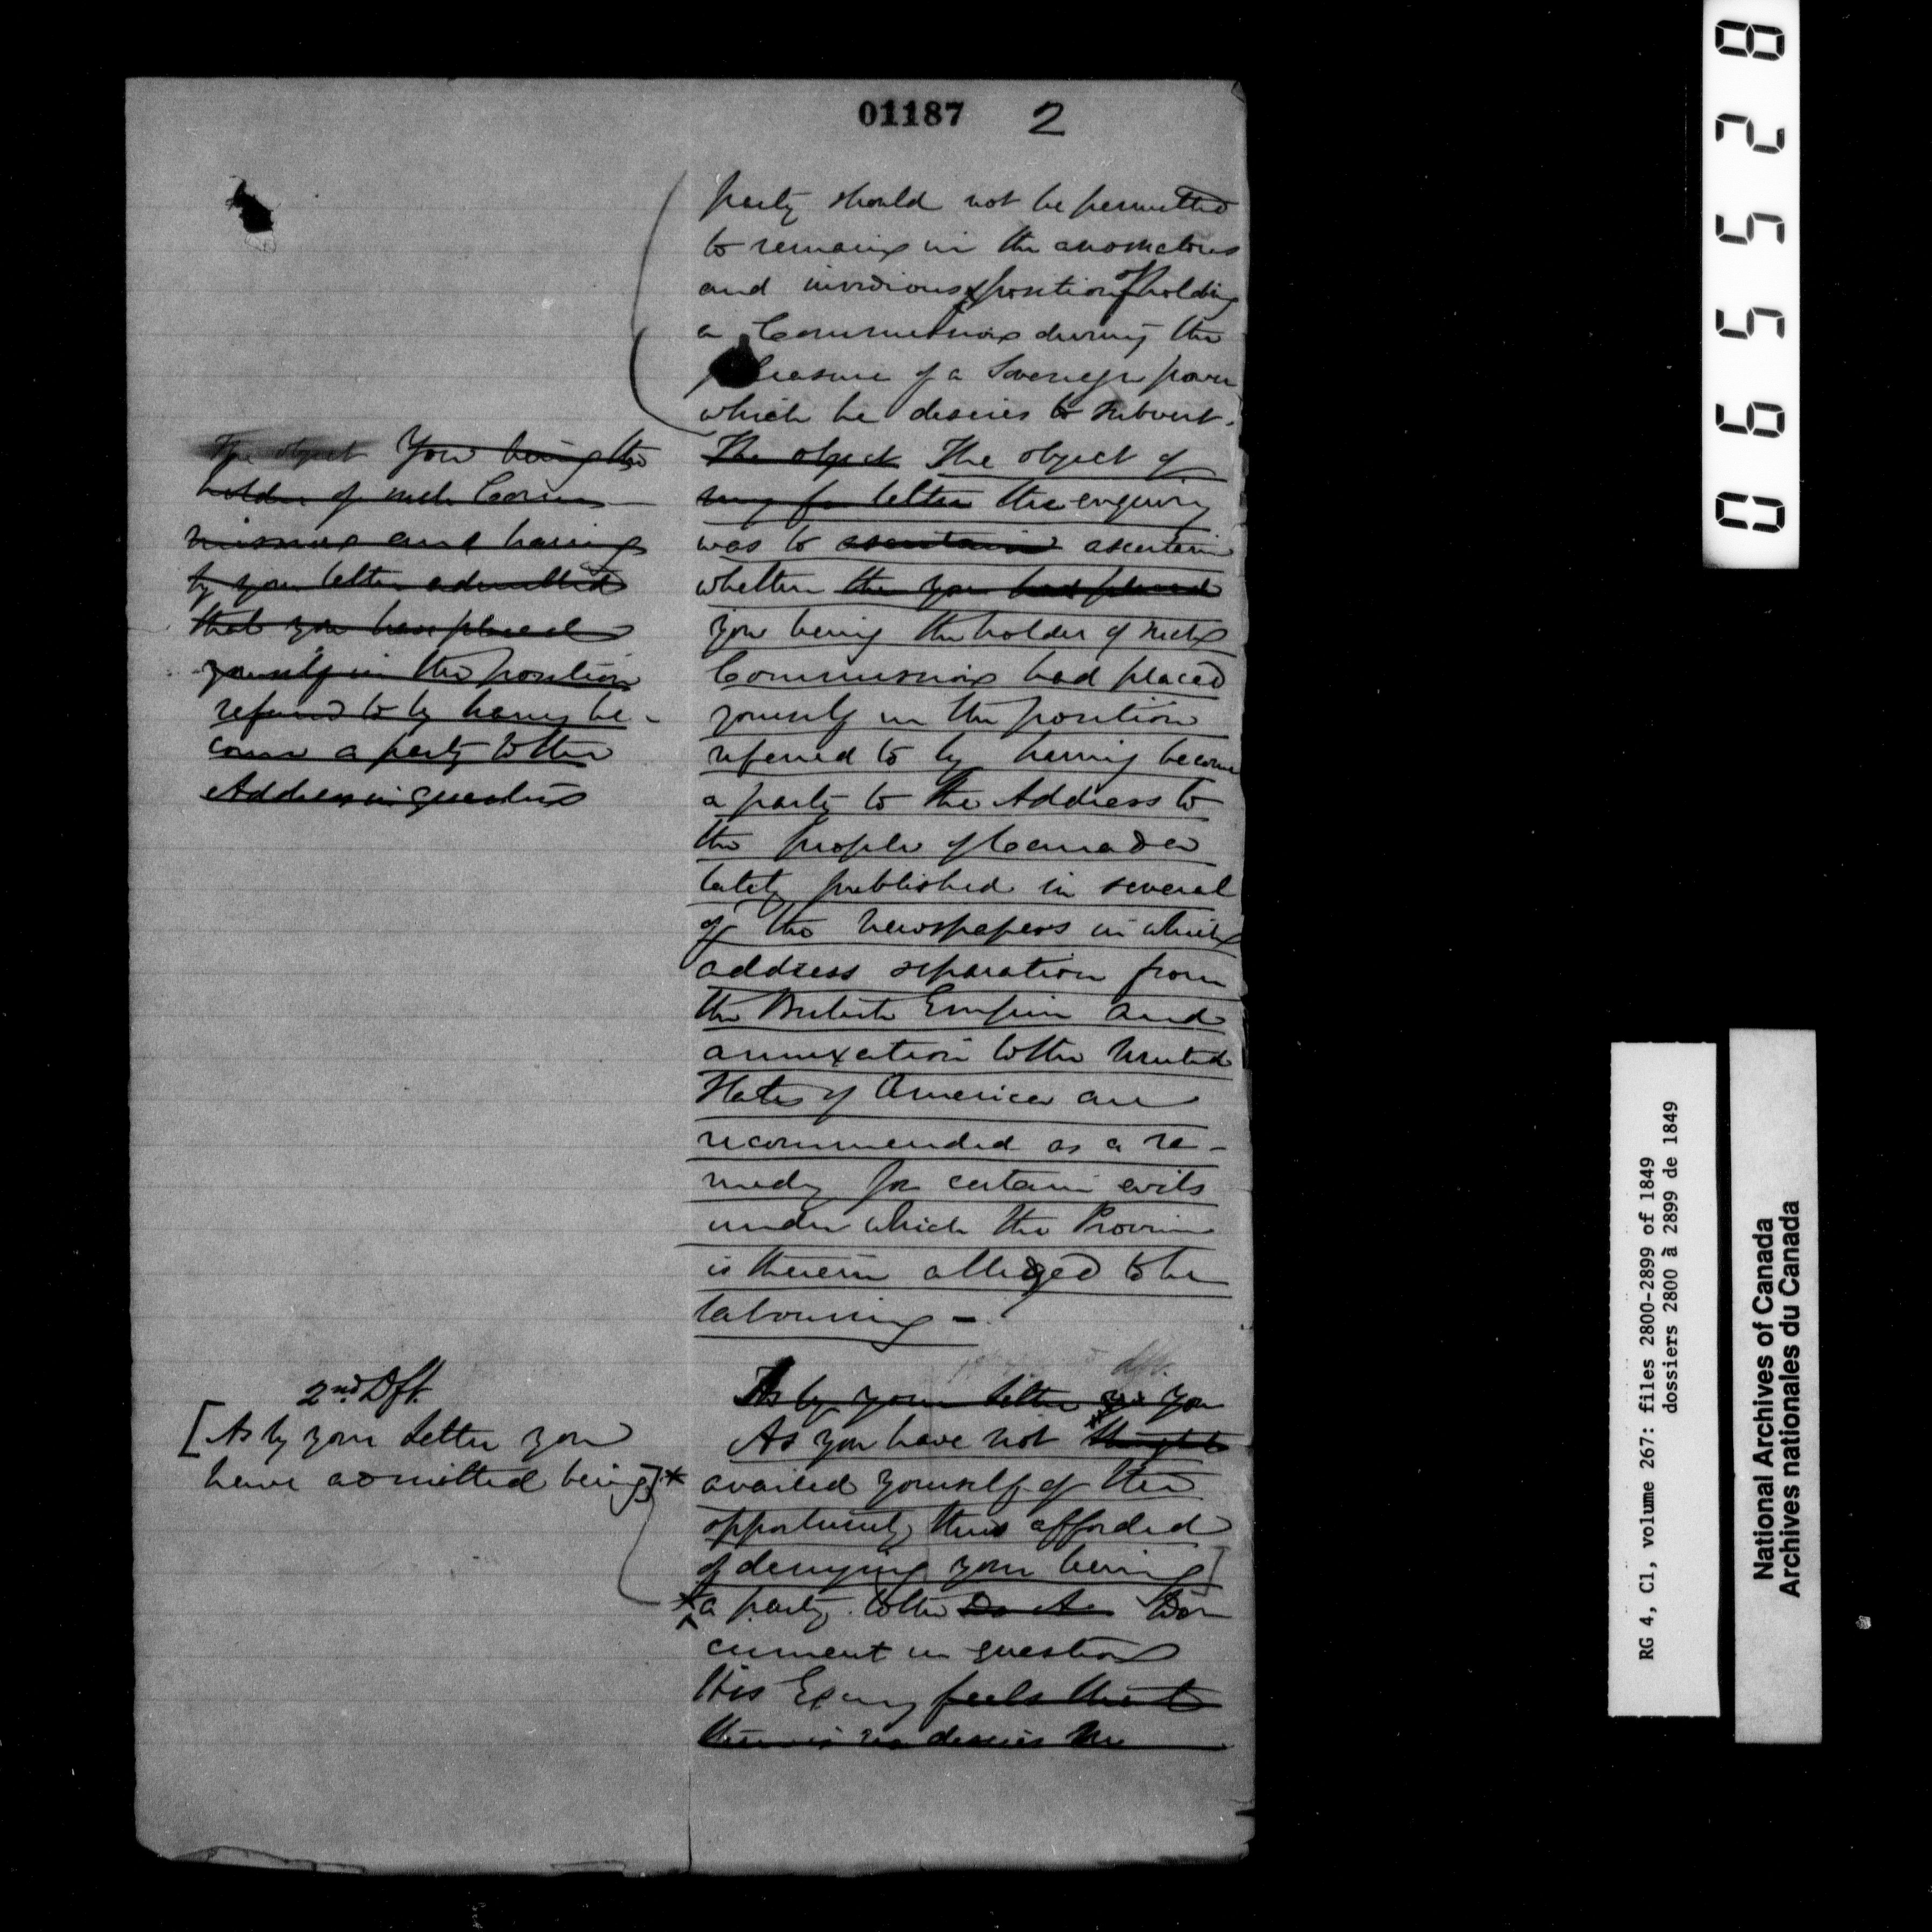 01187 2
party should not be permitted
to remain in the anomalous
and invidious position of holding
a Commission during the
pleasure of a Sovereign power
which he desires to subvert.
The object The object of
my letter the enquiry
was to ascertain ascertain
whether the you had placed
you being the holder of such
Commission had placed
yourself in the position
referred to by having become
a party to the Address to
the people of Canada
lately published in several
of the Newspapers in which
address separation from
the British Empire and
annexation to the United
States of America are
recommended as a re-
medy for certain evils
under which the Province
is therein alleged to be
labouring -
dft.
As by your letter you
As you have not thought
availed yourself of the
opportunity thus afforded
of denying your being]
*a party to the Do
cument in question
His Exency feels that
there is no desires
The object You being the
holder of such Com-
mission and having
by your letter admitted
that you have placed
yourself in the position
referred to by having be-
come a party to the
Address in question
2nd Dft.
[As by your letter you
have admitted being]*
065528
RG 4, C1, volume 267: files 2800-2899 of 1849
dossiers 2800 à 2899 de 1849
National Archives of Canada
Archives nationales du Canada